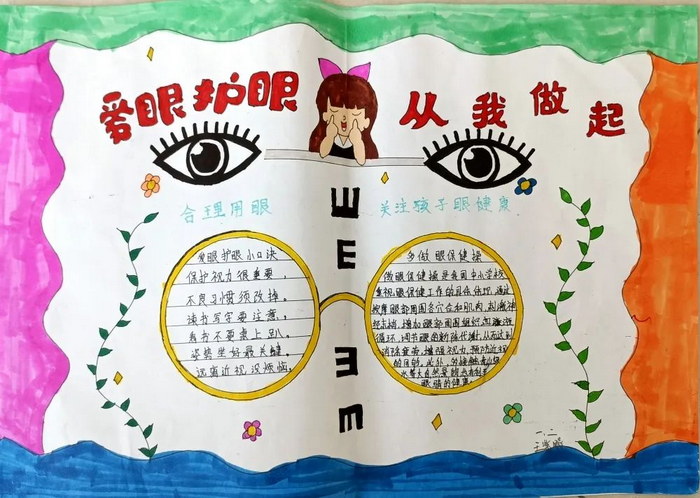 爱眼护眼 从我做起
合理用眼
关注孩子眼健康
爱眼护眼小口诀
保护视力很重要，
不良习惯须改掉。
读书写字要注意，
看书不要桌上趴。
姿势坐好最关键，
远离近视没烦恼。
多做眼保健操
做眼保健操是我国中小学校
重视眼保健工作的具体体现，通过
按摩眼部周围各穴位和肌肉，刺激神
经末梢，增加眼部周围组织血液
循环，调节眼的新陈代谢，从而达到
消除疲劳，增强视力，预防近视
的目的。此外，
眼睛的健康。
E
E
E
E